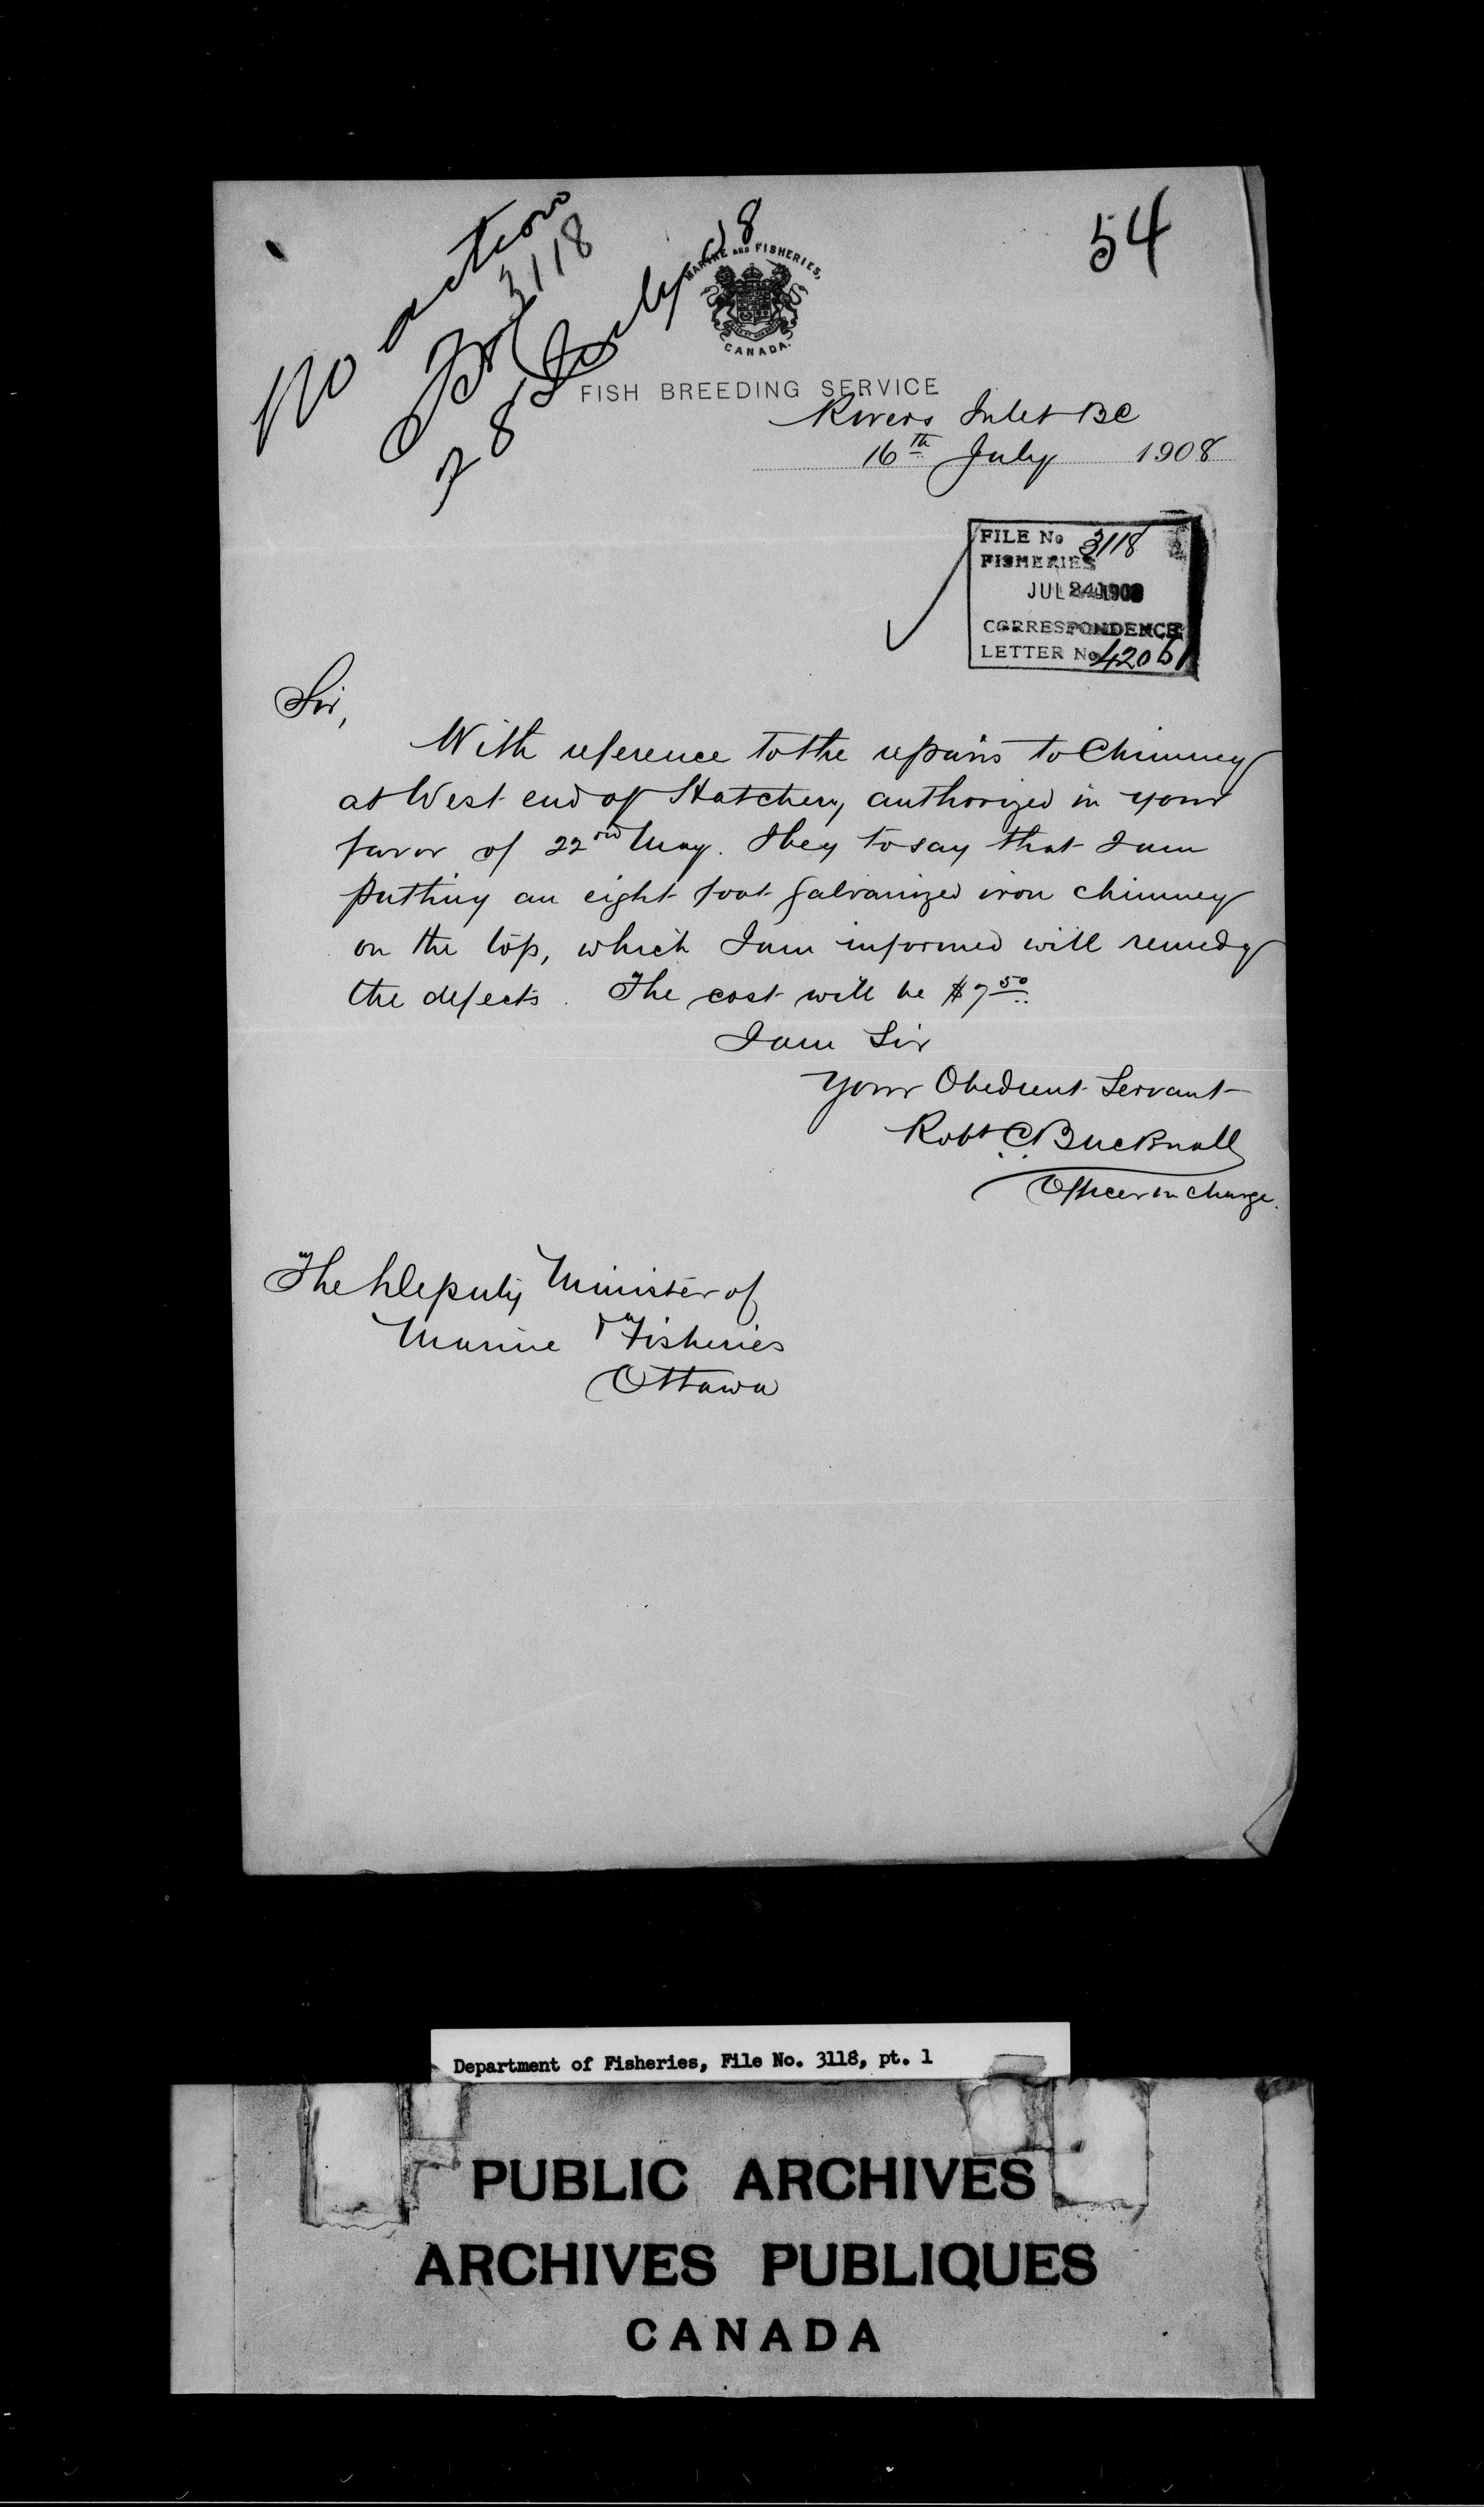 No action
3118
28 July 08
54
MARINE AND FISHERIES,
CANADA.
FISH BREEDING SERVICE
Rivers Inlet BC
16th July 1908
FILE No 3118
FISHERIES
JUL 24 1908
CORRESPONDENCE
LETTER No 42061
Sir,
With reference to the repairs to Chimney
at West end of Hatchery, authorized in your
favor of 22nd May. I beg to say that I am
putting an eight foot galvanized iron chimney
on the top, which I am informed will remedy
the defects. The cost will be $7.50
I am Sir
Your Obedient Servant
Robt C. Bucknall
Officer in Charge.
The Deputy Minister of
Marine & Fisheries
Ottawa
Department of Fisheries, File No. 3118, pt. 1
PUBLIC ARCHIVES
ARCHIVES PUBLIQUES
CANADA